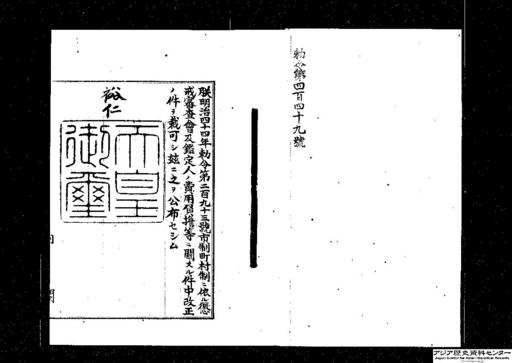 勅令第四百四十九號
朕明治四十四年勅令第二百九十三號市制町村制ニ依ル懲
戒審査會及鑑定人ノ費用負擔等ニ關スル件中改正
ノ件ヲ裁可シ玆ニ之ヲ公布セシム
裕仁
天皇
御璽
アジア歴史資料センター
Japan Center for Asian Historical Records